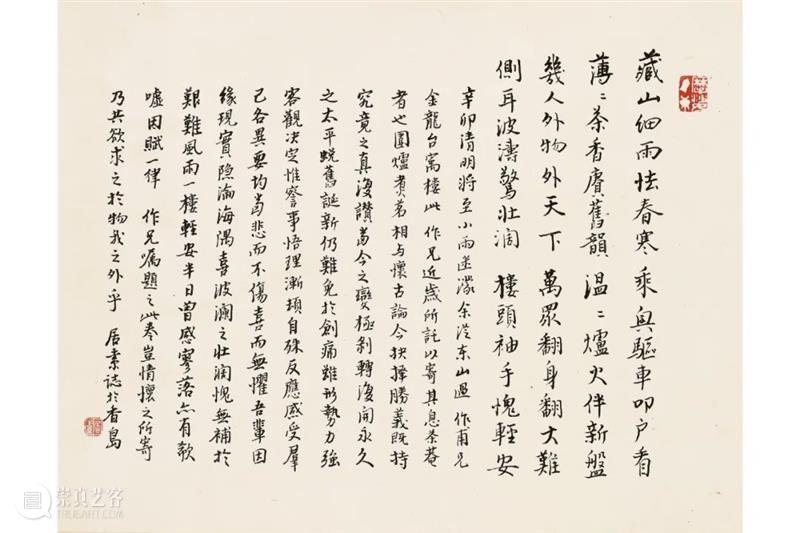 藏山細雨怯春寒 乘興驅車叩户看
薄〻茶香賡舊韻 温〻爐火伴新盤
幾人外物外天下 萬眾翻身翻大難
側耳波濤驚壯闊 樓頭袖手愧輕安
辛卯清明將至小雨迷濛余從东山過 作甫兄
金龍台寓樓此 作兄近歲所託以寄其息茶菴
者也圍爐煮茗相与懷古論今抉擇勝義既持
究竟之真復讚當今之變極剥轉復開永久
之太平蜕舊誕新仍難免於創痛雖形勢力強
客觀決定惟察事悟理漸頓自殊反應感受羣
己各異要均當悲而不傷喜而無懼吾輩因
緣現實隐淪海隅喜波瀾之壯闊愧無補於
艱難風雨一樓輕安半日曾感寥落亦有欷
嘘因賦一律 作兄嘱題之此卷豈情懷之所寄
乃共欲求之於物我之外乎 居素誌於香島
崇真艺客